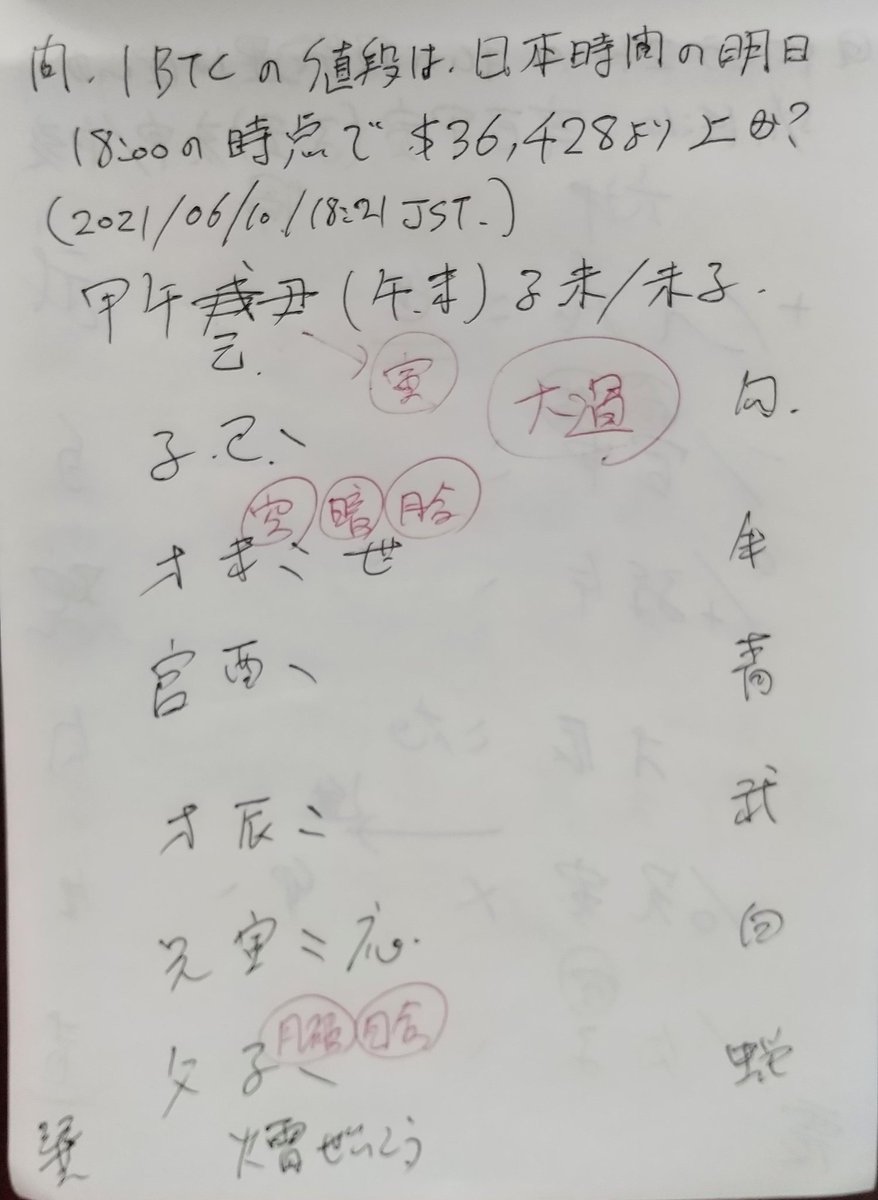 問. 1 BTCの値段は、日本時間の明日
18:00の時点で $36,428より上か?
(2021/06/10/18:21 JST.)
甲午 丑 (午.未) 子未/未子.
己.
寅 大過
勾.
子 巳、
空 暗 月合
才 未〻 世 朱
官 酉、 青
才 辰〻 武
兄 寅〻 応. 白
月破 日合
父 子、 蛇
巽 火雷ぜいごう